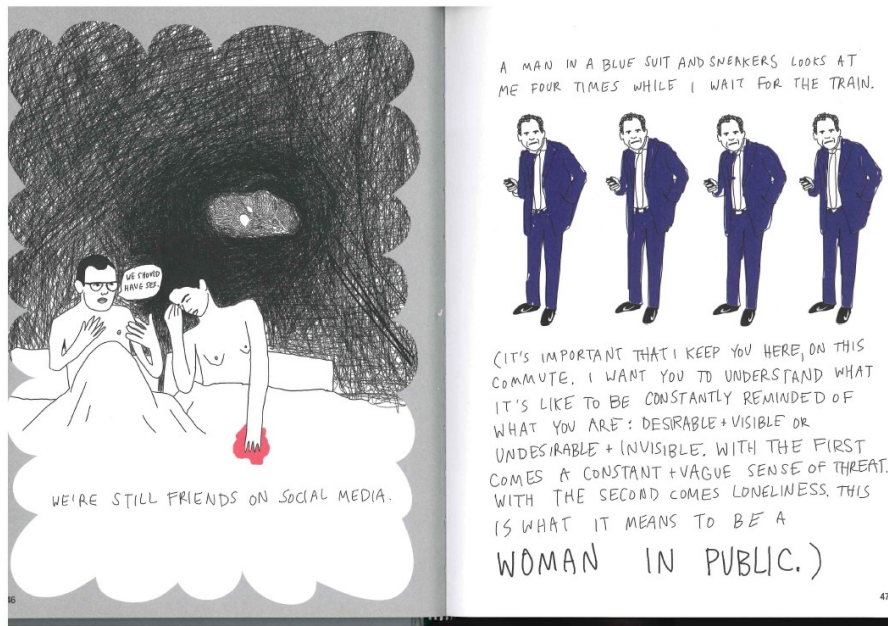 WE SHOULD
HAVE SEX.
WE'RE STILL FRIENDS ON SOCIAL MEDIA.
46
A MAN IN A BLUE SUIT AND SNEAKERS LOOKS AT
ME FOUR TIMES WHILE I WAIT FOR THE TRAIN.
(IT'S IMPORTANT THAT I KEEP YOU HERE, ON THIS
COMMUTE. I WANT YOU TO UNDERSTAND WHAT
IT'S LIKE TO BE CONSTANTLY REMINDED OF
WHAT YOU ARE: DESIRABLE + VISIBLE OR
UNDESIRABLE + INVISIBLE. WITH THE FIRST
COMES A CONSTANT + VAGUE SENSE OF THREAT.
WITH THE SECOND COMES LONELINESS. THIS
IS WHAT IT MEANS TO BE A
WOMAN IN PUBLIC.)
47